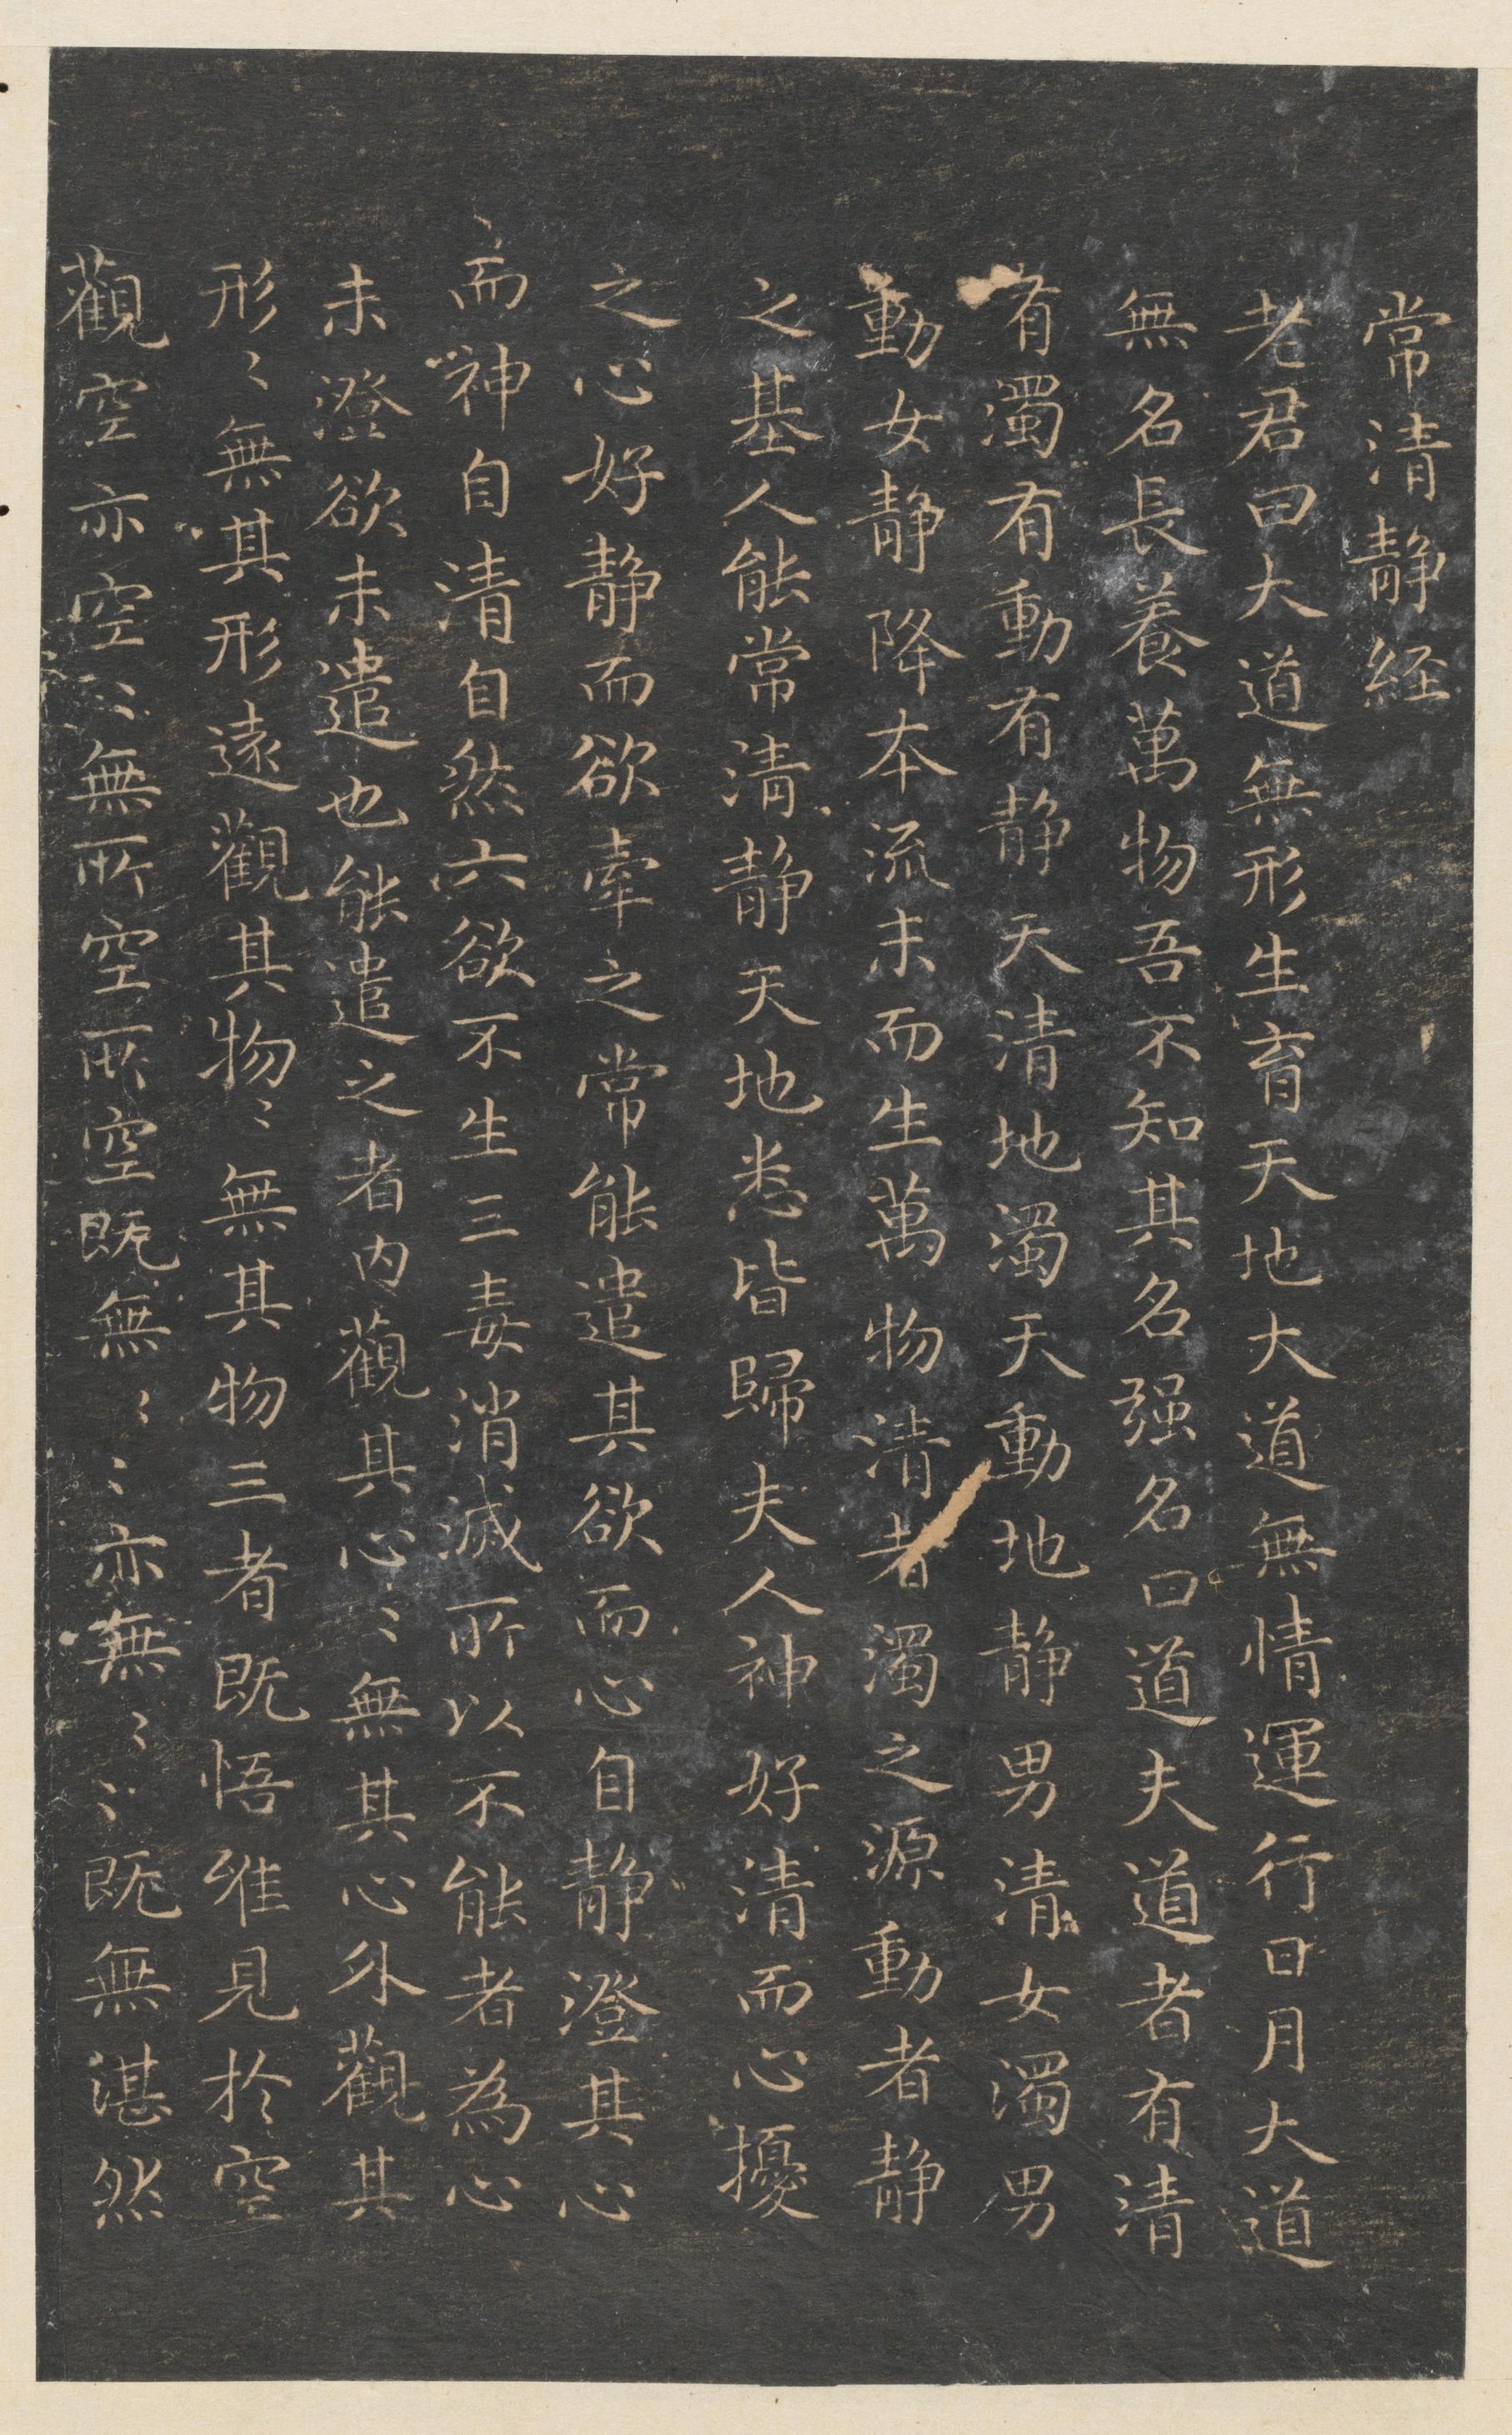 常清静経
老君曰大道無形生育天地大道無情運行日月大道
無名長養萬物吾不知其名强名曰道夫道者有清
有濁有動有静天清地濁天動地静男清女濁男
動女静降本流末而生萬物清者濁之源動者静
之基人能常清静天地悉皆歸夫人神好清而心擾
之心好静而欲牽之常能遣其欲而心自静澄其心
而神自清自然六欲不生三毒消滅所以不能者為心
未澄欲未遣也能遣之者内觀其心〻無其心外觀其
形〻無其形遠觀其物〻無其物三者既悟唯見於空
觀空亦空〻無所空所空既無〻〻亦無〻〻既無湛然